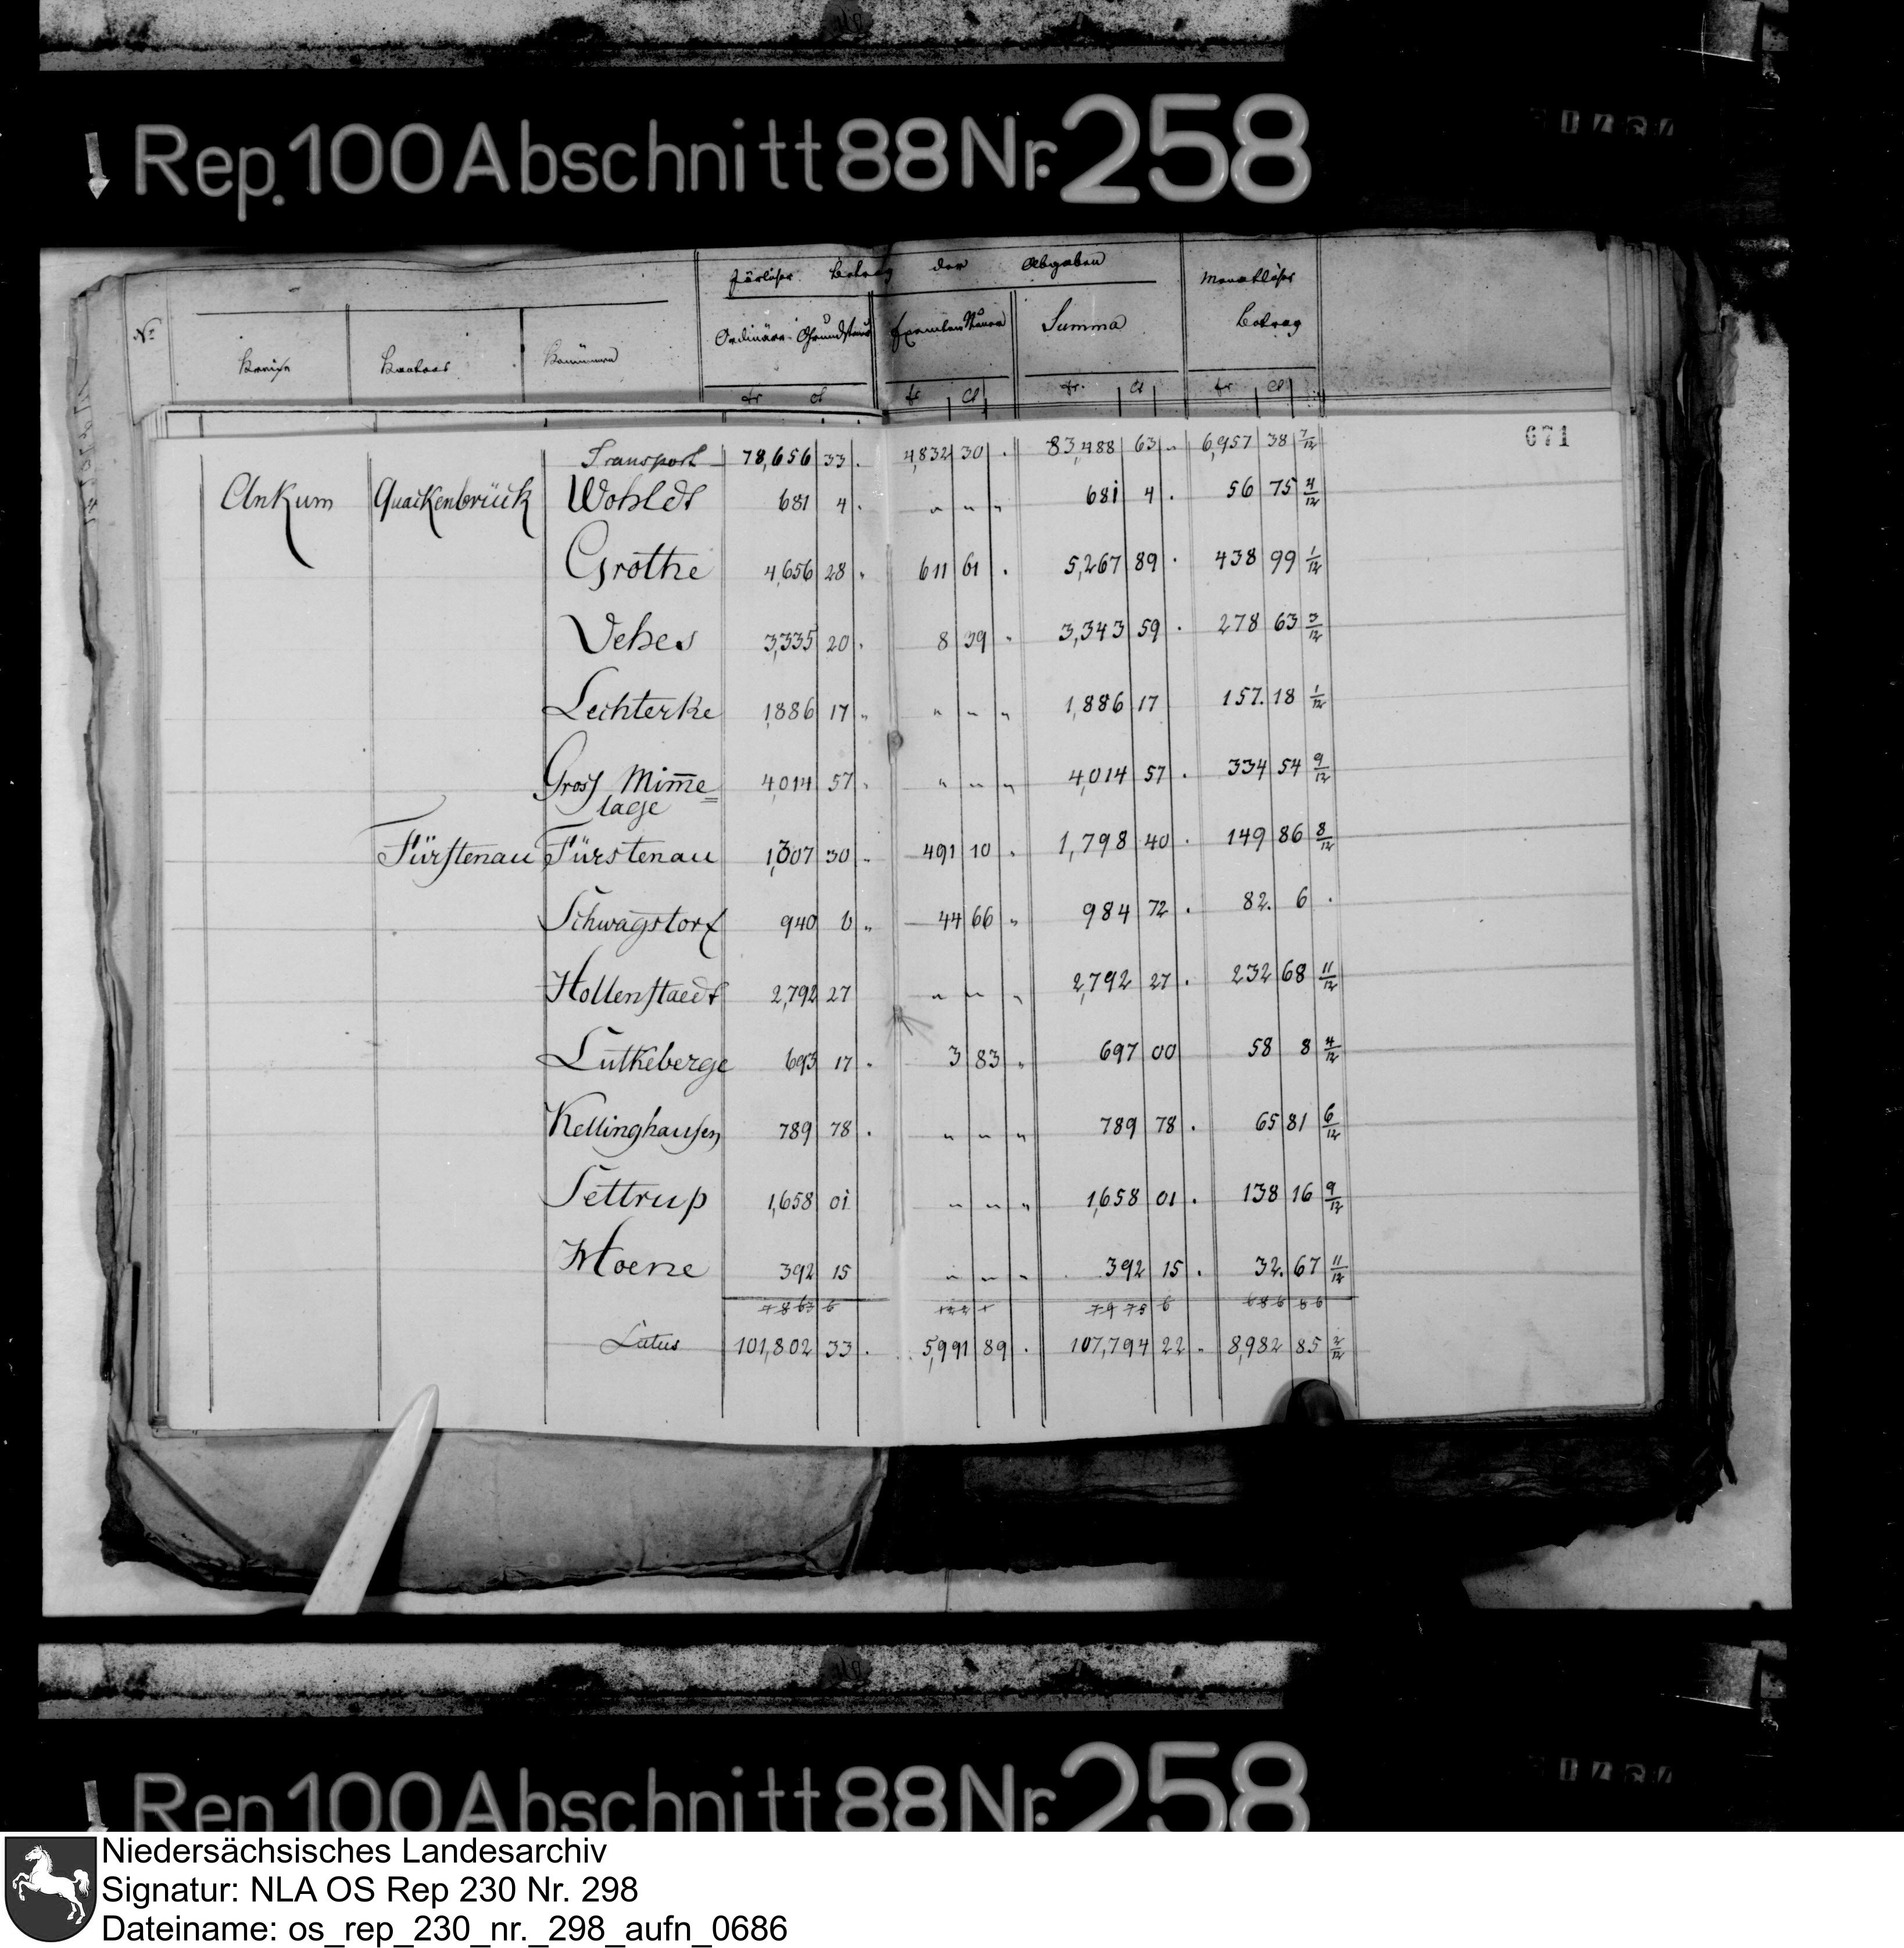 Rep. 100 Abschnitt 88 Nr. 258
Järlicher Betrag der Abgaben Monatlicher Betrag
No Kreise Kantons Kommunen Ordinäre Grundsteuer Exemten Steuer Summa
fr cs fr cs fr. cs fr cs
671
Transport 78,656 33 . 4,832 30 . 83,488 63 „ 6,957 38 7/12
Ankum Quackenbrück Wohldt 681 4 . „ „ „ 681 4 . 56 75 4/12
Grothe 4,656 28 „ 611 61 . 5,267 89 . 438 99 1/12
Vehes 3,335 20 . 8 39 „ 3,343 59 . 278 63 3/12
Lechterke 1,886 17 „ „ „ „ 1,886 17 157. 18 1/12
Gross Mim̄e= 4,014 57 . „ „ „ 4,014 57 . 334 54 9/12
lage
Fürstenau Fürstenau 1,307 30 „ 491 10 . 1,798 40 . 149 86 8/12
Schwagstorf 940 6 „ 44 66 „ 984 72 . 82. 6 .
Hollenstaedt 2,792 27 „ „ „ 2,792 27 . 232 68 11/12
Lutkeberge 693 17 . 3 83 „ 697 00 58 8 4/12
Kellinghausen 789 78 . „ „ „ 789 78 . 65 81 6/12
Settrup 1,658 01 „ „ „ 1,658 01 . 138 16 9/12
Hoene 392 15 „ „ „ 392 15 . 32. 67 11/12
Latus 101,802 33 . 5,991 89 . 107,794 22 „ 8,982 85 2/12
Rep. 100 Abschnitt 88 Nr. 258
Niedersächsisches Landesarchiv
Signatur: NLA OS Rep 230 Nr. 298
Dateiname: os_rep_230_nr._298_aufn_0686